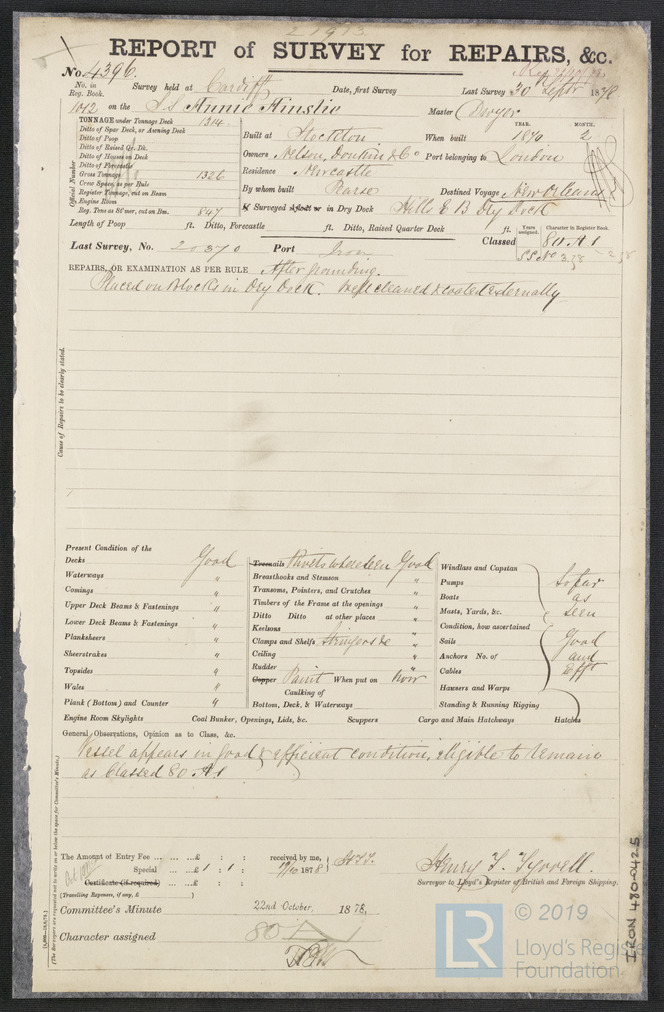 REPORT of SURVEY for REPAIRS, &c.
No. 4396.
No. in Reg. Book. Survey held at Cardiff Date, first Survey Last Survey 30 Septr 1878
1042 on the S.S Annie Ainslie Master Dwyer
TONNAGE under Tonnage Deck 1314
Ditto of Spar Deck, or Awning Deck
Ditto of Poop
Ditto of Raised Qr. Dk.
Ditto of Houses on Deck
Ditto of Forecastle
Gross Tonnage 1326
Crew Space, as per Rule
Register Tonnage, cut on Beam
Engine Room
Reg. Tons as St'mer, cut on Bm. 847
Official Number
Built at Stockton When built YEAR. 1870 MONTH. 2
Owners Nelson, Donkin & Co Port belonging to London
Residence Newcastle
By whom built Pearse Destined Voyage New Orleans
If Surveyed afloat or in Dry Dock Hills E B Dry Dock
Length of Poop ft. Ditto, Forecastle ft. Ditto, Raised Quarter Deck ft.
Years assigned. Character in Register Book.
Last Survey, No. 20370 Port Iron Classed 80 A 1
REPAIRS, OR EXAMINATION AS PER RULE After grounding.
Placed on blocks in Dry Dock. Well cleaned & coated externally
Cause of Repairs to be clearly stated.
Present Condition of the
Decks Good
Waterways "
Comings "
Upper Deck Beams & Fastenings "
Lower Deck Beams & Fastenings "
Planksheers "
Sheerstrakes "
Topsides "
Wales "
Plank (Bottom) and Counter "
Engine Room Skylights
Treenails Rivets where seen Good
Breasthooks and Stemson "
Transoms, Pointers, and Crutches "
Timbers of the Frame at the openings "
Ditto Ditto at other places "
Keelsons "
Clamps and Shelfs Stringers &c "
Ceiling "
Rudder "
Copper Paint When put on Now
Caulking of
Bottom, Deck, & Waterways
Coal Bunker, Openings, Lids, &c. Scuppers
Windlass and Capstan
Pumps
Boats
Masts, Yards, &c.
Condition, how ascertained
Sails
Anchors No. of
Cables
Hawsers and Warps
Standing & Running Rigging
so far
as
seen
Good
and
Efft
Cargo and Main Hatchways Hatches
General Observations, Opinion as to Class, &c.
Vessel appears in good & efficient condition, eligible to remain
as classed 80 A 1
The Amount of Entry Fee £ : : received by me,
Special £ 1 : 1 : 1878
Certificate (if required) £ : :
(Travelling Expenses, if any, £ )
Henry T. Tyrrell.
Surveyor to Lloyd's Register of British and Foreign Shipping.
Committee's Minute 22nd October, 1878,
Character assigned 80 A 1
(The Surveyors are requested not to write on or below the space for Committee's Minute.)
IRON 480-0425
LR
© 2019
Lloyd's Register
Foundation